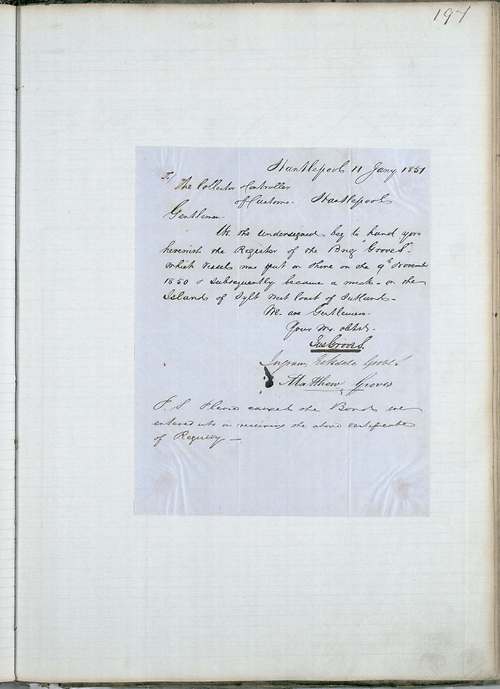 197
Hartlepool 11 Jany 1851
To The Collector & Controller
of Customs. Hartlepool
Gentlemen
We the undersigned beg to hand you
herewith the Register of the Brig Groves.
which vessel was put on Shore on the 9th November
1850 & subsequently became a wreck on the
Island of Sylt West Coast of Jutland.
We are Gentlemen
Your
Jas Groves.
Ingram Groves
Matthew Groves
P.S. Please cancel the Bond we
entered into on receiving the above certificate
of Registry